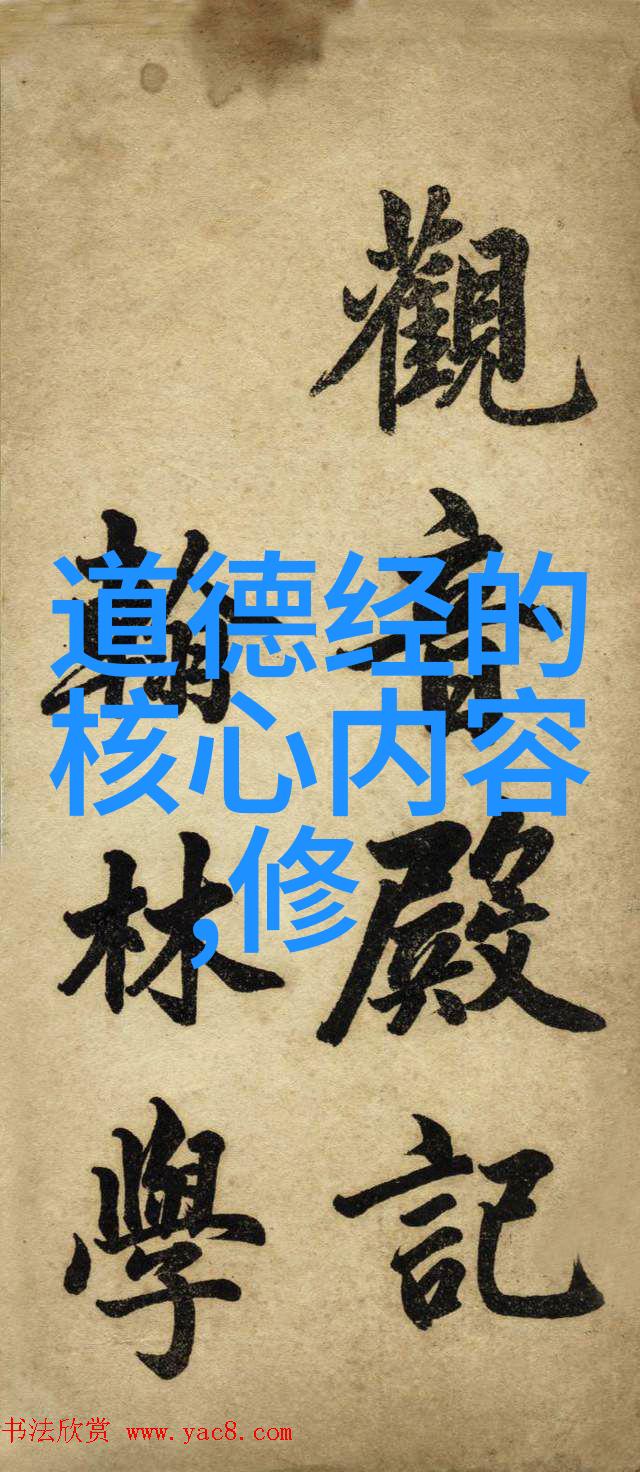 觀音殿記
翰林學
道德经的
核心内容
,修
书法欣赏 www.yac8.com